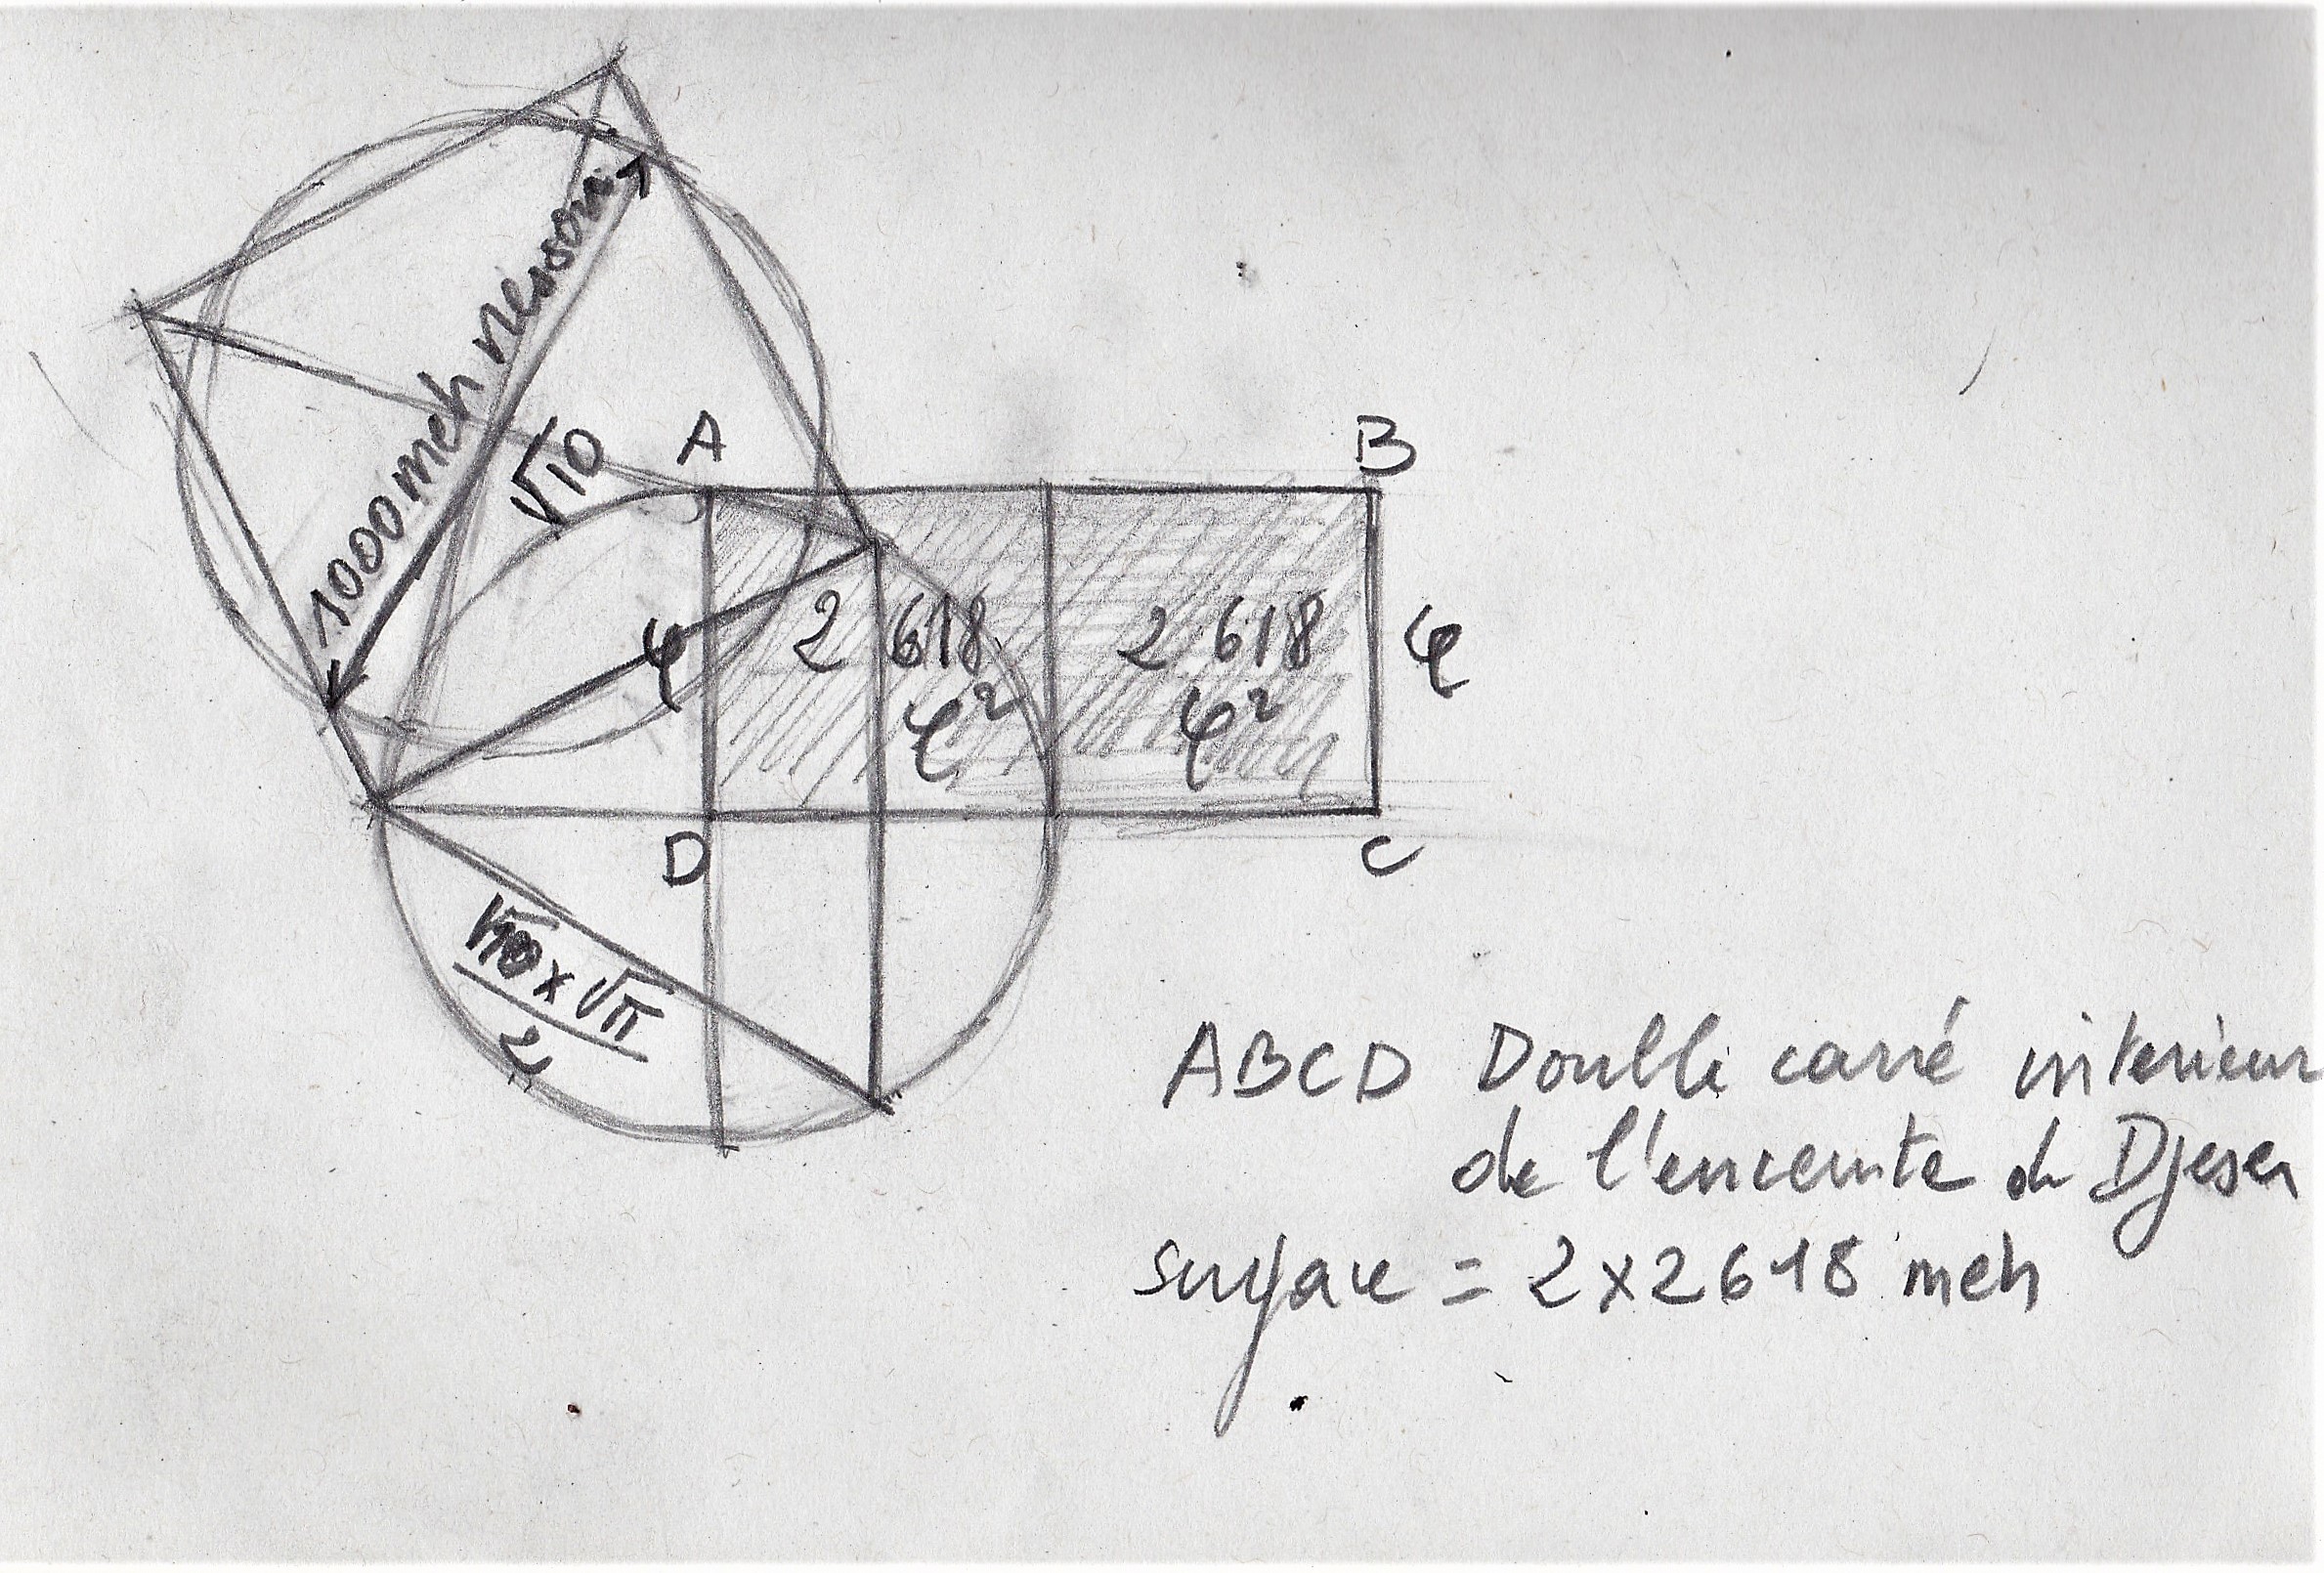 1000 meh nesout
√10
A
B
φ
2 618
2 618
φ
φ²
φ²
D
C
√100 × √π
2
ABCD Double carré interieur
de l'enceinte de Djeser
surface = 2x2618 meh